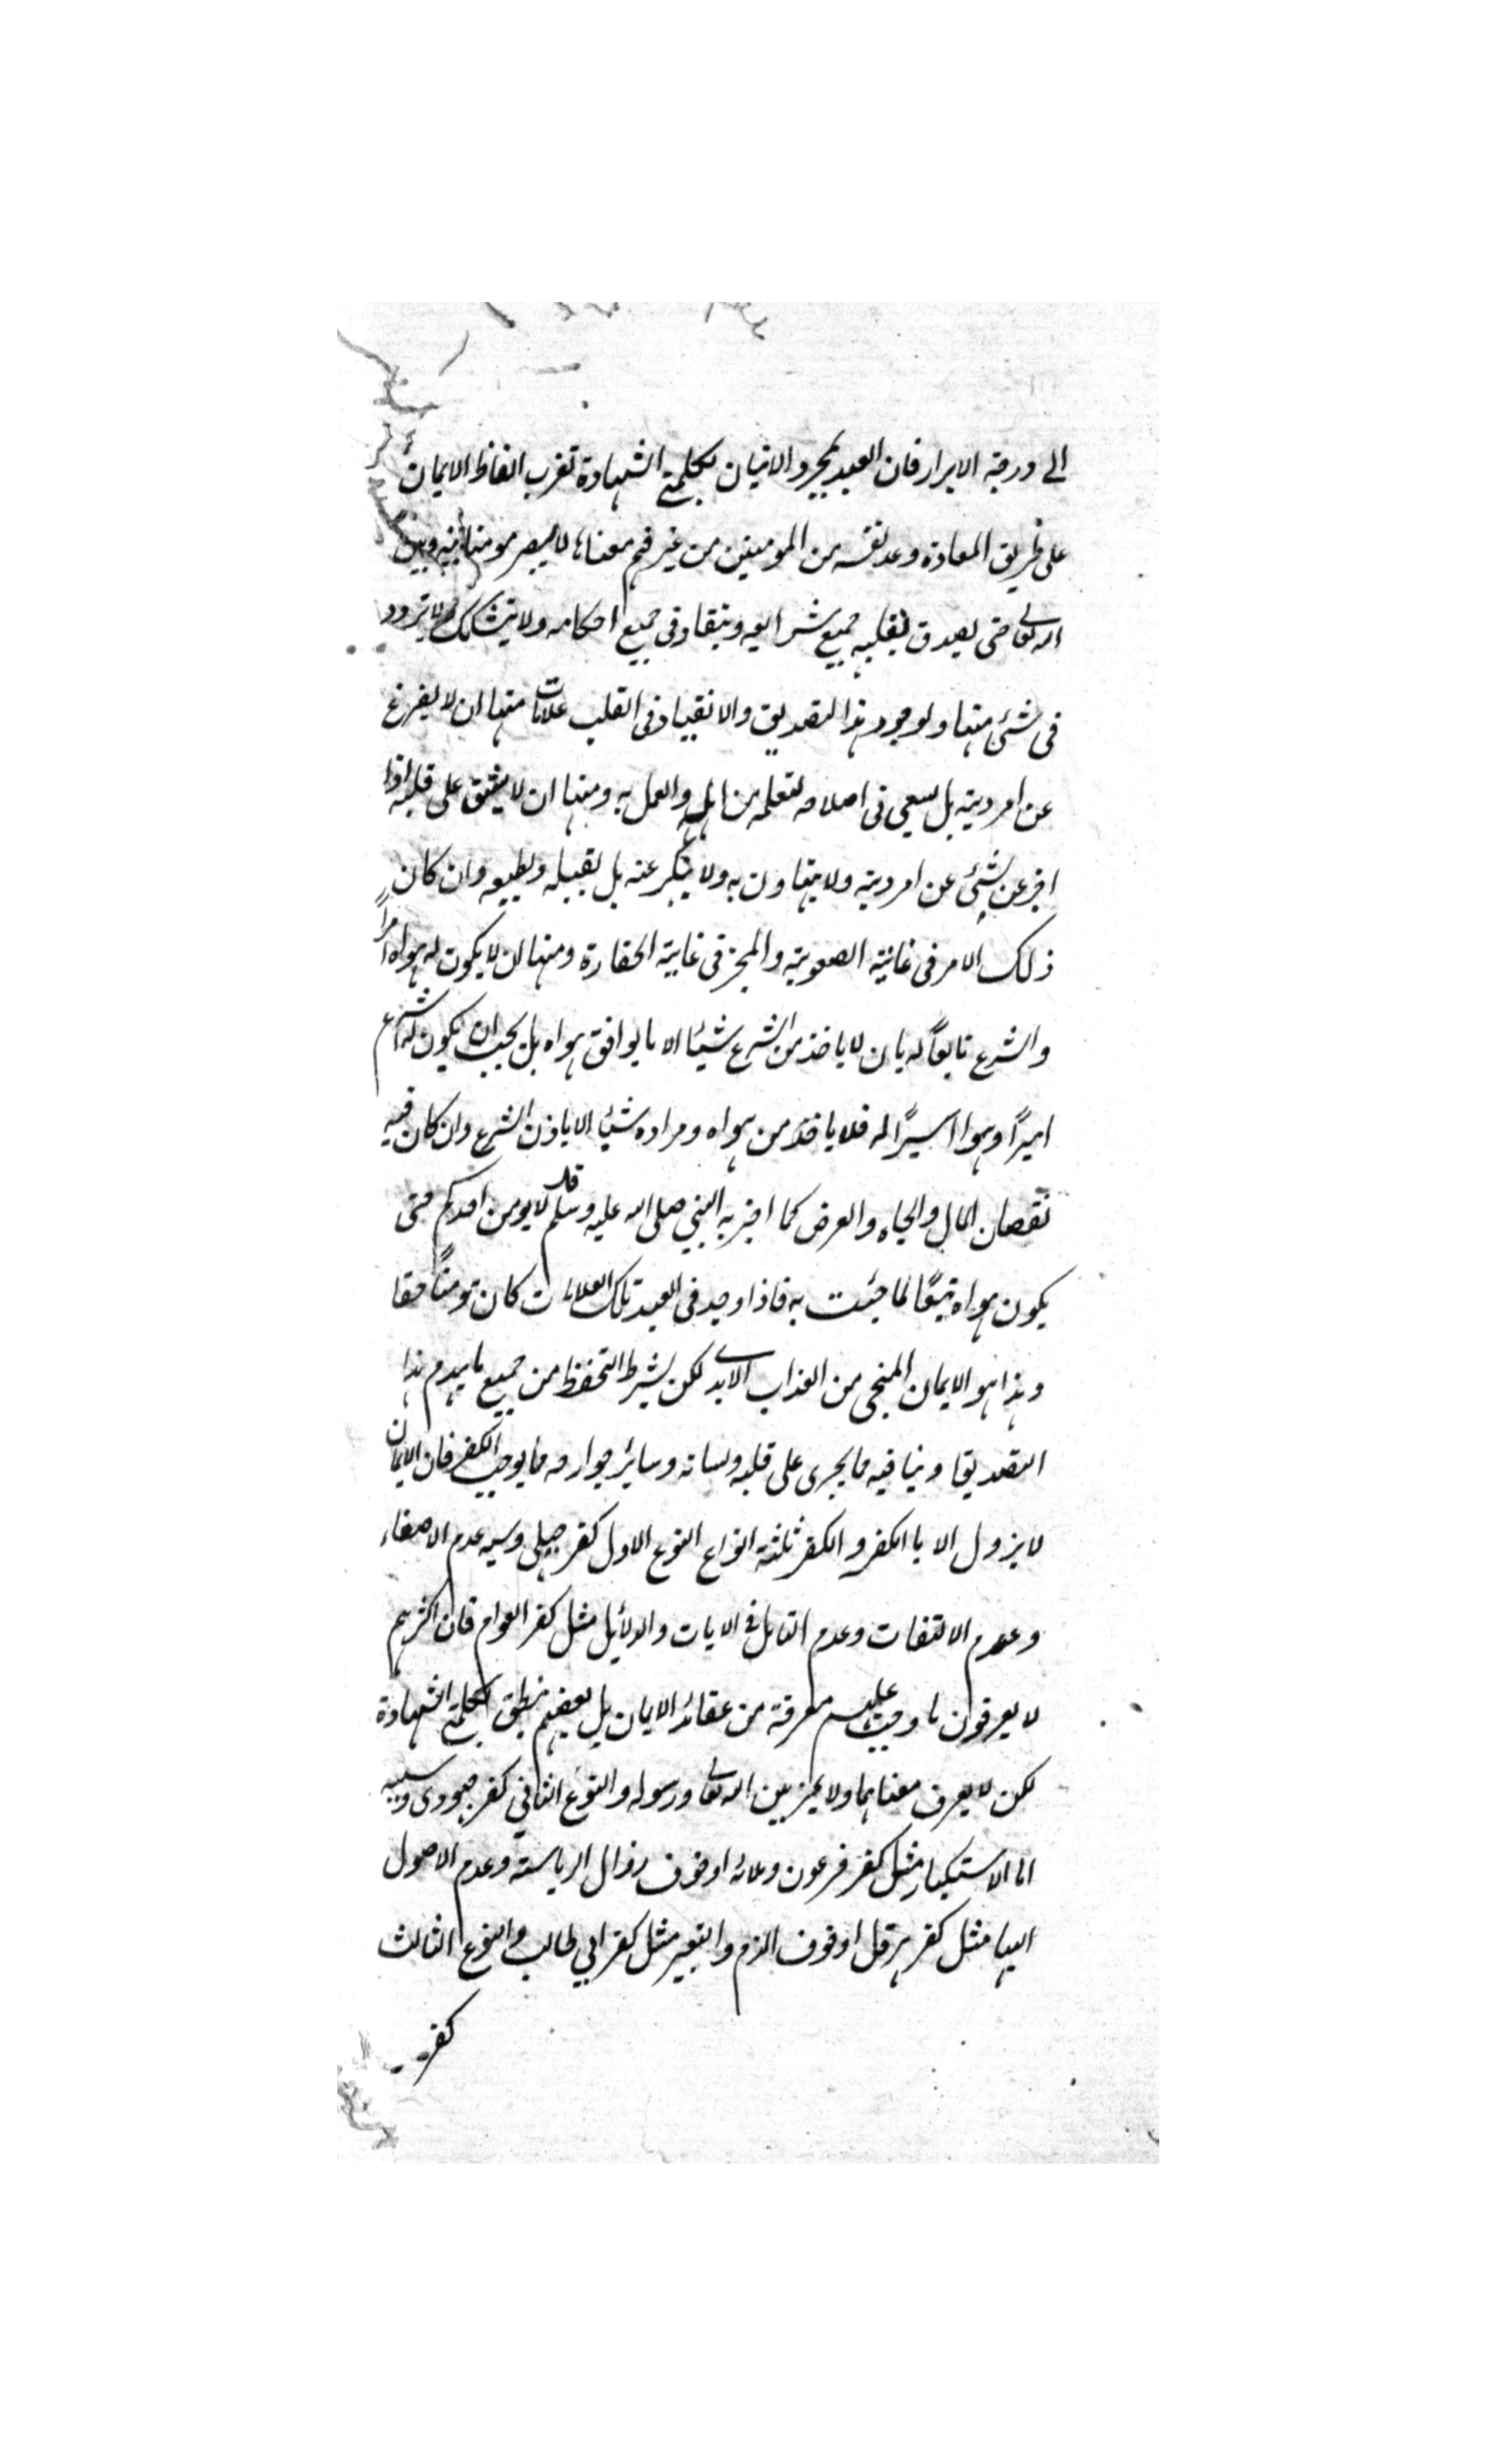 الى درجة الابرار فان العبد بمجرد الاتيان بكلمتي الشهادة تغرب الفاظ الايمان
على طريق العادة وعد نفسه من المومنين من غير فهم معناها لا يصير مومنا بينه وبين
الله تعالى حتى يصدق بقلبه جميع شرايعه وينقاد في جميع احكامه ولا يتشكك ولا يتردد
في شئ منها ولوجود هذا التصديق والانقياد في القلب علامات منها ان لا يفرغ
عن امر دينه بل يسعى في اصلاحه لتعلمه من اهله والعمل به ومنها ان لا يشق على قلبه اذا
اخبر عن شئ عن امر دينه ولا يتهاون به ولا يتكبر عنه بل يقبله ويطيعه وان كان
ذلك الامر في غاية الصعوبة والمخبر في غاية الحقارة ومنها ان لا يكون له هواه امراً
والشرع تابعاً له بان لا ياخذ من الشرع شيئا الا ما يوافق هواه بل يجب ان يكون له الشرع
اميراً وهواه اسيراً له فلا ياخذ من هواه ومراده شيئا الا باذن الشرع وان كان فيه
نقصان المال والجاه والعرض كما اخبر به النبي صلى الله عليه وسلم قال لا يومن احدكم حتى
يكون هواه تبعًا لما جئت به فاذا وجد في العبد تلك العلامات كان مومناً حقا
وهذا هو الايمان المنجى من العذاب الابدي لكن بشرط التحفظ من جميع ما يهدم هذا
التصديق وينافيه مما يجرى على قلبه ولسانه وسائر جوارحه مما يوجب الكفر فان الايمان
لا يزول الا بالكفر والكفر ثلثة انواع النوع الاول كفر جهلى وسببه عدم الاصغاء
وعدم الالتفات وعدم التامل في الايات والدلائل مثل كفر العوام فان اكثرهم
لا يعرفون ما وجب عليهم معرفة من عقائد الايمان بل بعضهم ينطق بكلمتي الشهادة
لكن لا يعرف معناهما ولا يميز بين الله تعالى ورسوله والنوع الثاني كفر جحودى وسببه
اما الاستكبار مثل كفر فرعون وملائه او خوف زوال الرياسة وعدم الاصول
اليها مثل كفر هرقل او خوف الذم والتعيير مثل كفر ابي طالب والنوع الثالث
كفر